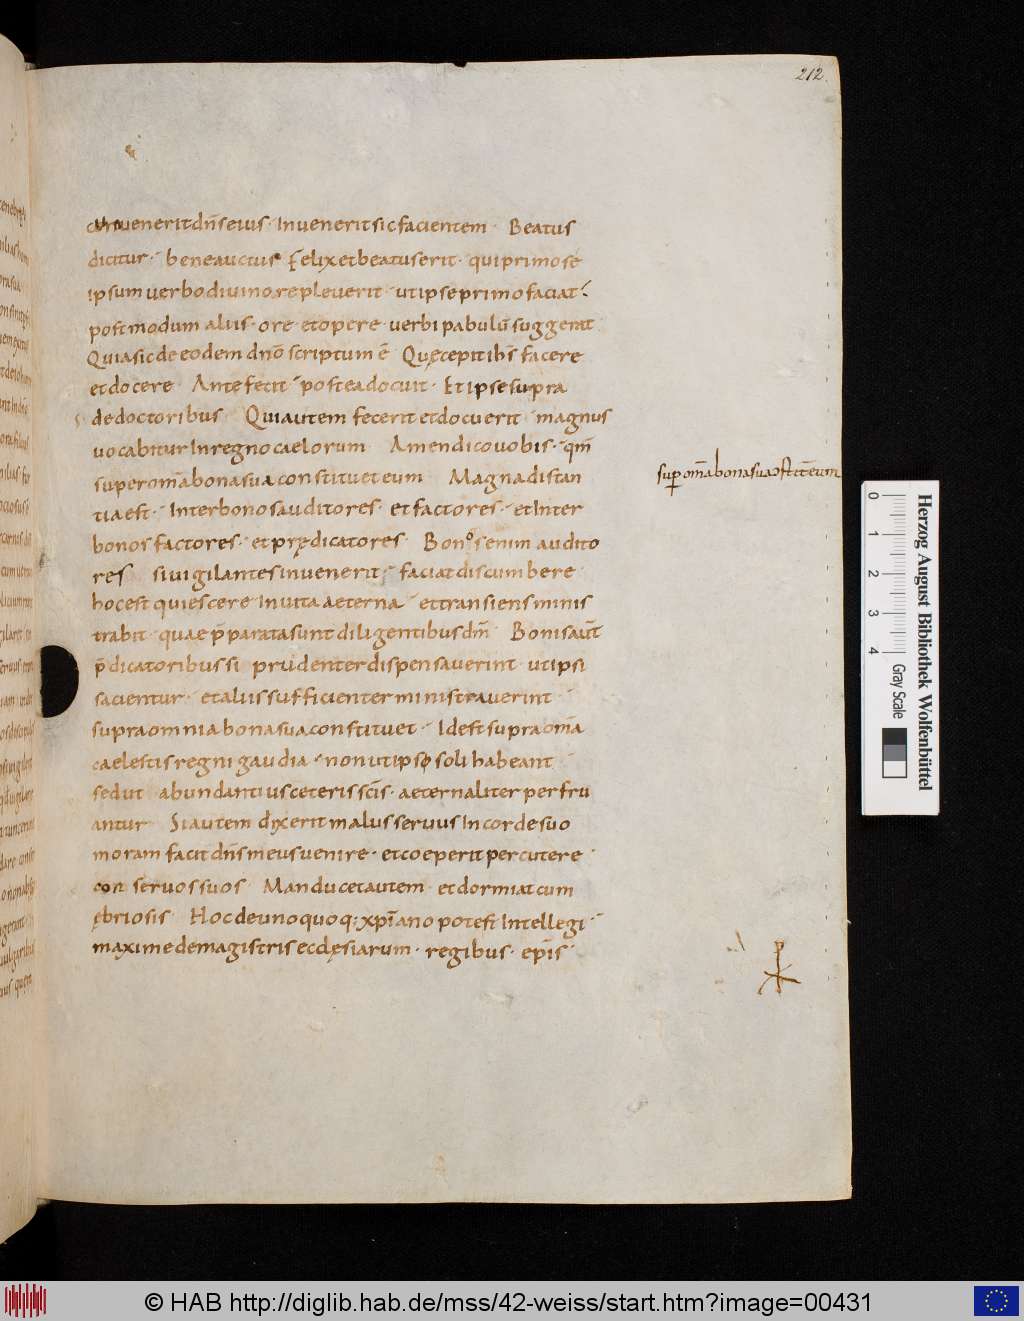 212
cum uenerit dn̄s eius · Inuenerit sic facientem · Beatus
dicitur · bene auctus Felix et beatus erit · qui primo se
ipsum uerbo diuino repleuerit · ut ipse primo faciat ·
postmodum aliis · ore et opere · uerbi pabulū suggerat
Quia sic de eodem dn̄o scriptum ē Quę cepit ih̄s facere
et docere Ante fecit · postea docuit · Et ipse supra
de doctoribus Qui autem fecerit et docuerit · magnus
uocabitur In regno caelorum Amen dico uobis · qm̄
super om̄a bona sua constituet eum Magna distan
tia est · Inter bonos auditores · et factores · et Inter
bonos factores · et prędicatores Bonos enim audito
res si uigilantes inuenerit · faciat discumbere
hoc est quiescere In uita aeterna et transiens minis
trabit · quae p̄parata sunt diligentibus dm̄ Bonis aut̄
p̄dicatoribus si prudenter dispensauerint · ut ipsi
sacientur · et aliis sufficienter ministrauerint ·
supra omnia bona sua constituet · Id est supra om̄a
caelestis regni gaudia · non ut ipse soli habeant
sed ut abundantius ceteris sc̄is · aeternaliter perfru
antur Si autem dixerit malus seruus In corde suo
moram facit dn̄s meus uenire · et coeperit percutere
con seruos suos Manducet autem et dormiat cum
ębriosis Hoc de uno quoq; xp̄iano potest Intellegi ·
maxime de magistris ecclęsiarum · regibus · ep̄is
sup om̄a bona sua ɔstit& eum
Herzog August Bibliothek Wolfenbüttel
0 1 2 3 4
Gray Scale
© HAB http://diglib.hab.de/mss/42-weiss/start.htm?image=00431